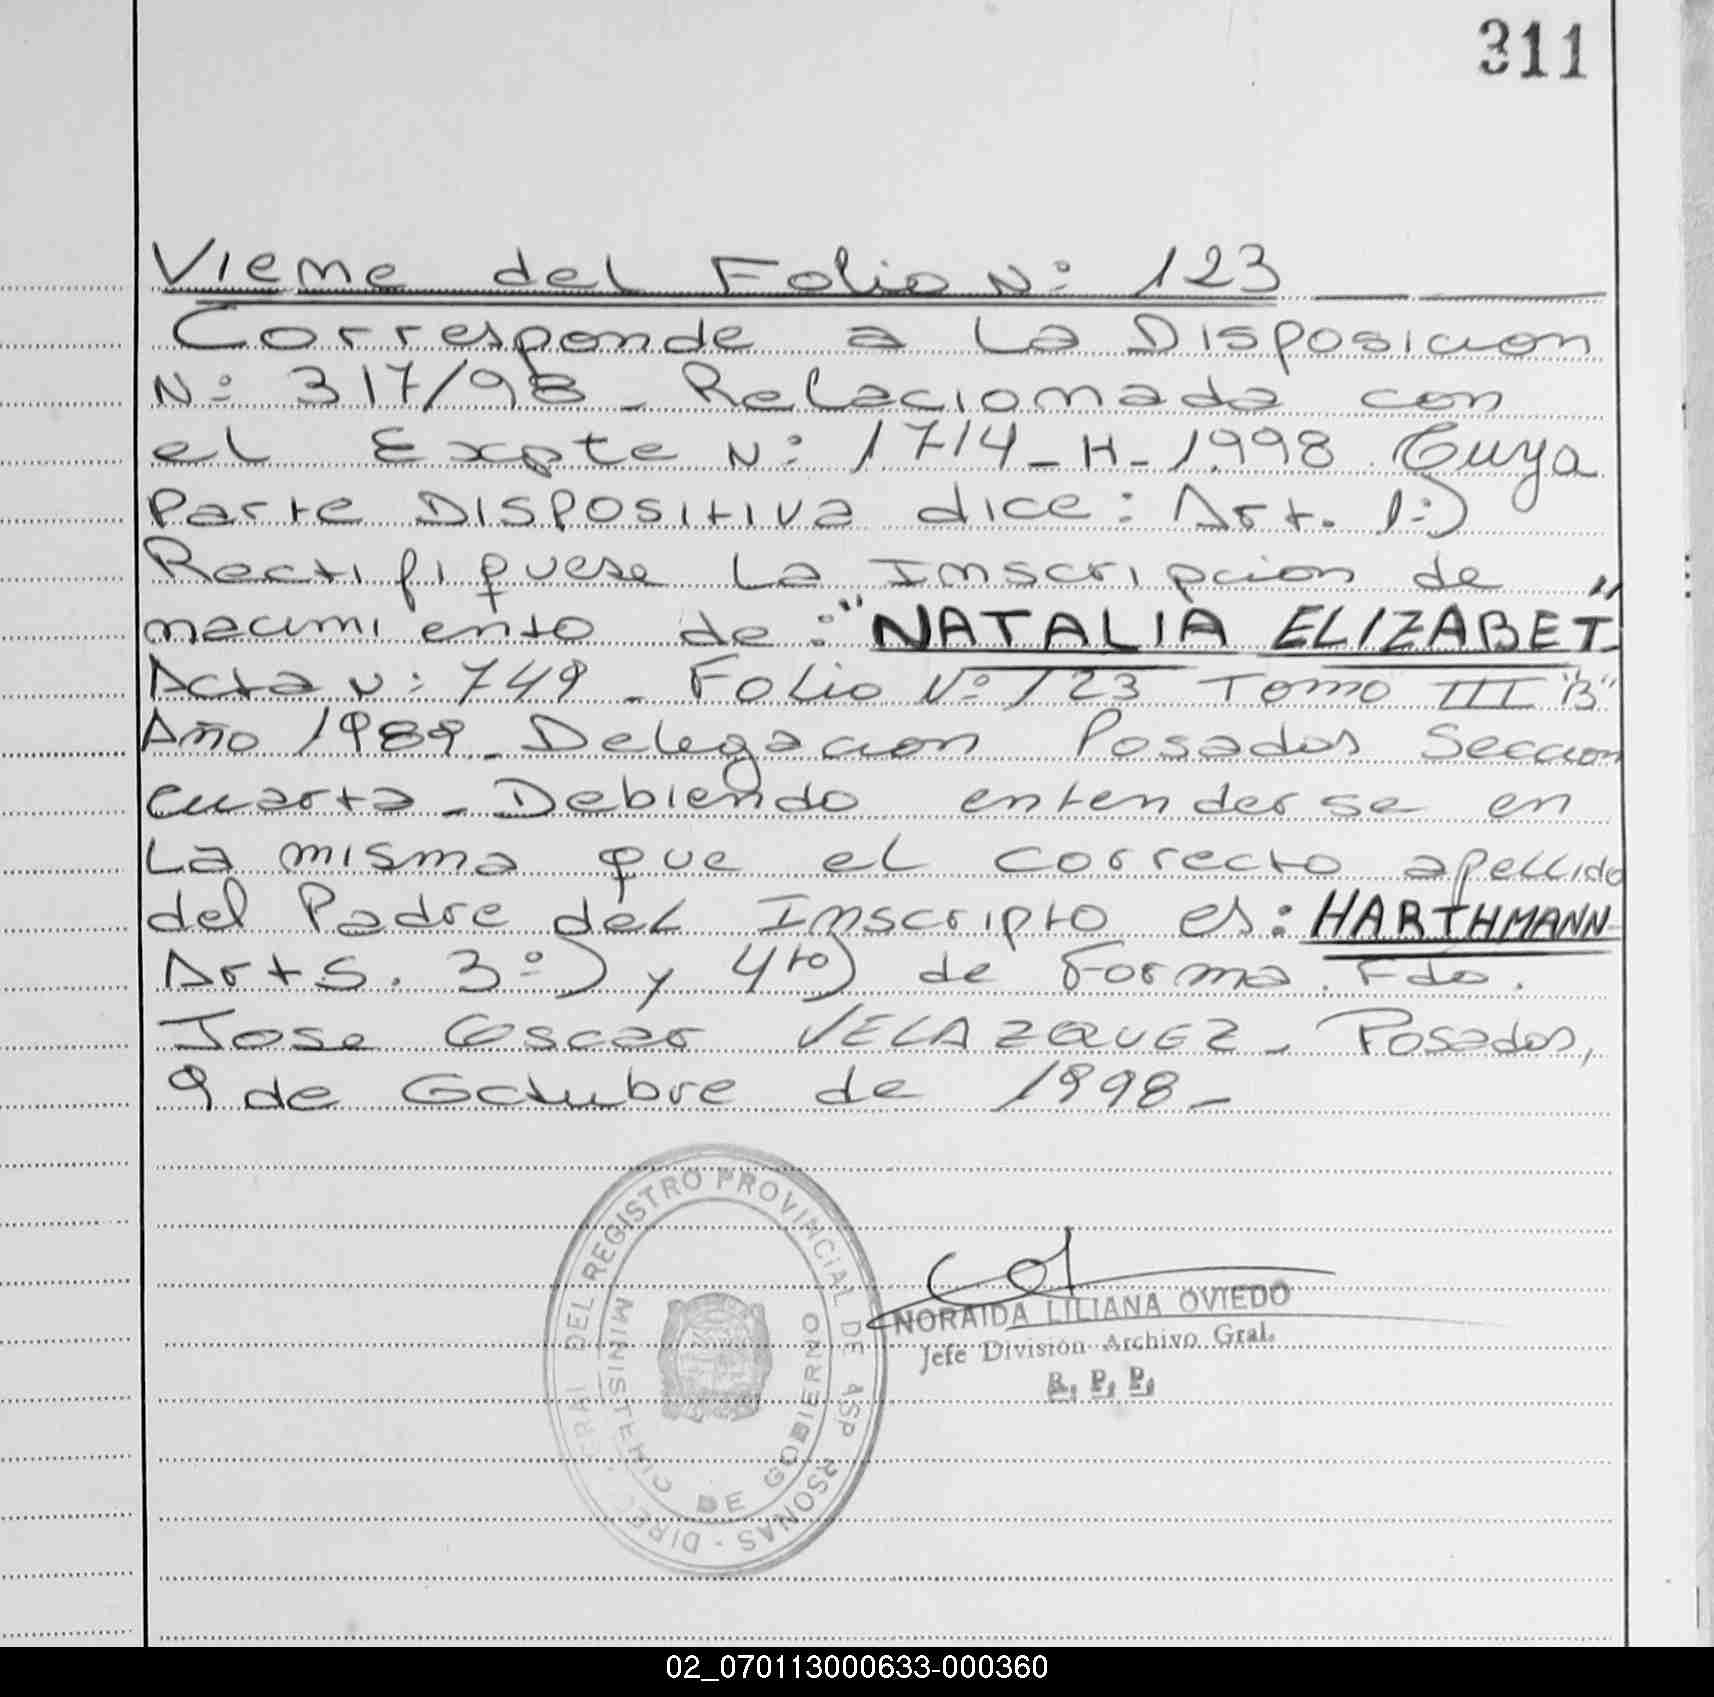 311
Viene del Folio Nº 123
Corresponde a La Disposicion
Nº 317/98 - Relacionada con
el Expte Nº 1714-H-1998 Cuya
Parte Dispositiva dice: Art. 1º)
Rectifiquese La Inscripcion de
nacimiento de: "NATALIA ELIZABET"
Acta Nº 749 - Folio Nº 123 Tomo III "B"
Año 1989 - Delegacion Posadas Seccion
cuarta - Debiendo entenderse en
La misma que el correcto apellido
del Padre del Inscripto es: HARTHMANN
Arts. 3º) y 4to) de Forma. Fdo.
Jose Oscar VELAZQUEZ - Posadas,
9 de Octubre de 1998 -
DEL REGISTRO PROVINCIAL DE
MINISTERIO DE GOBIERNO
NORAIDA LILIANA OVIEDO
Jefe División Archivo Gral.
R. P. P.
02_070113000633-000360